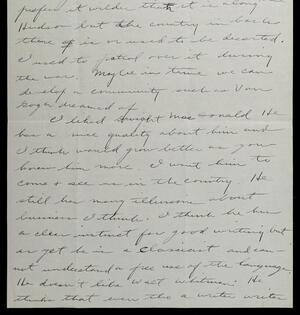 prefer it wilder than it is along
Hudson but the country in back
there is or used to be deserted.
I used to patrol over it during
the war. Maybe in time we can
develop a community such as Van
Gogh dreamed of
I liked Dwight Macdonald He
has a nice quality about him and
I think would grow better as you
knew him more. I want him to
come & see us in the country. He
still has many illusions about
business I think. I think he has
a clear instinct for good writing but
as yet he is a classicist and can
not understand a free use of the language.
He doesn't like Walt Whitman. He
thinks that even tho a writer writes